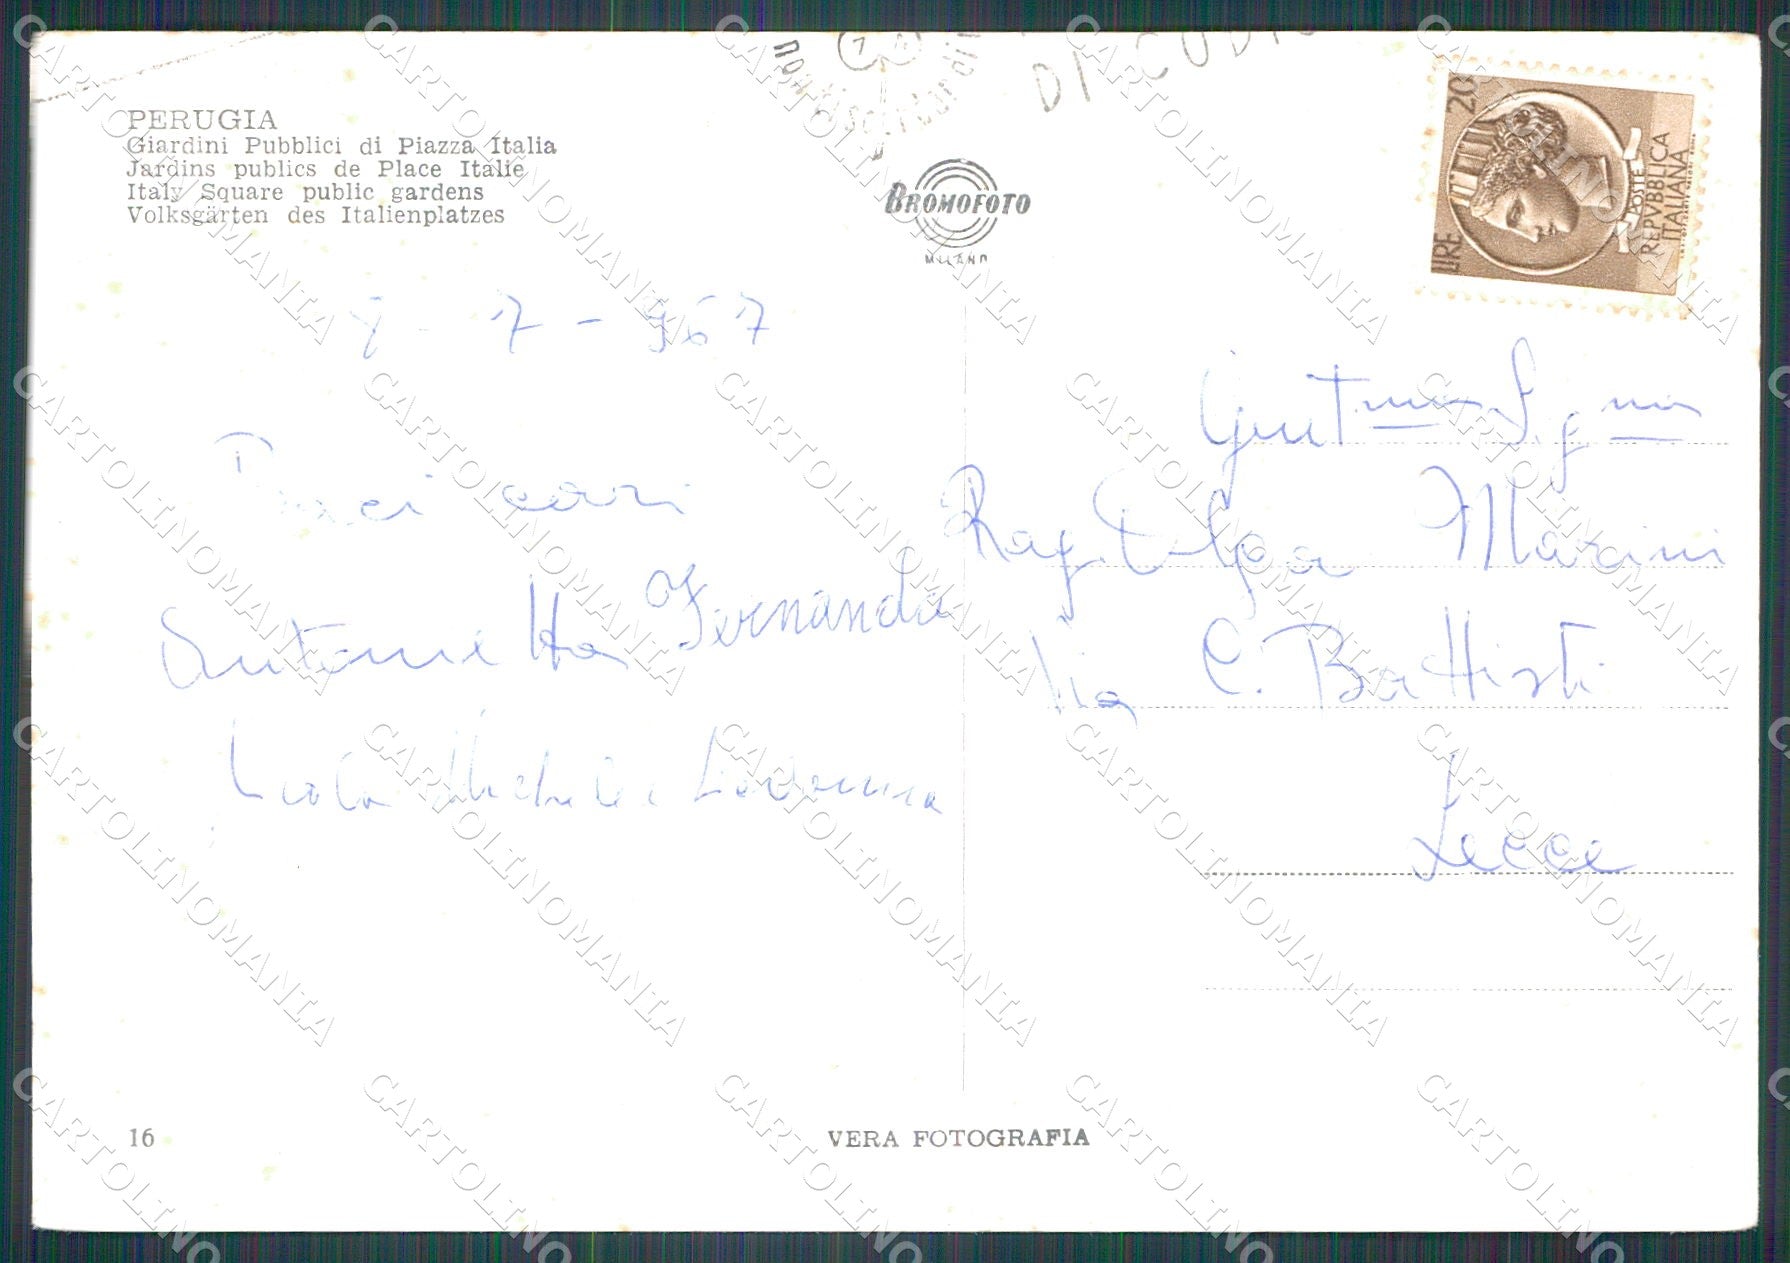 PERUGIA
Giardini Pubblici di Piazza Italia
Jardins publics de Place Italie
Italy Square public gardens
Volksgärten des Italienplatzes
non ti scordar di
DI CODI
BROMOFOTO
MILANO
LIRE 20
POSTE
REPVBBLICA
ITALIANA
8 - 7 - 967
Baci cari
Antonietta Fernanda
Gent.ma Sig.na
Rag. Olga Marini
Via C. Battisti
Lecce
16
VERA FOTOGRAFIA
CARTOLINOMANIA